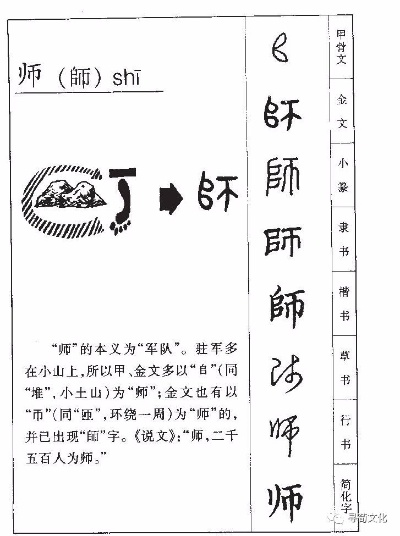 师（師）shī
師
"师"的本义为"军队"。驻军多
在小山上,所以甲、金文多以"𠂤"(同
"堆",小土山)为"师";金文也有以
"帀"(同"匝",环绕一周)为"师"的,
并已出现"師"字。《说文》:"师,二千
五百人为师。"
𠂤 甲骨文
師 金文
師 小篆
師 隶书
師 楷书
师 草书
师 行书
师 简化字
寻简文化